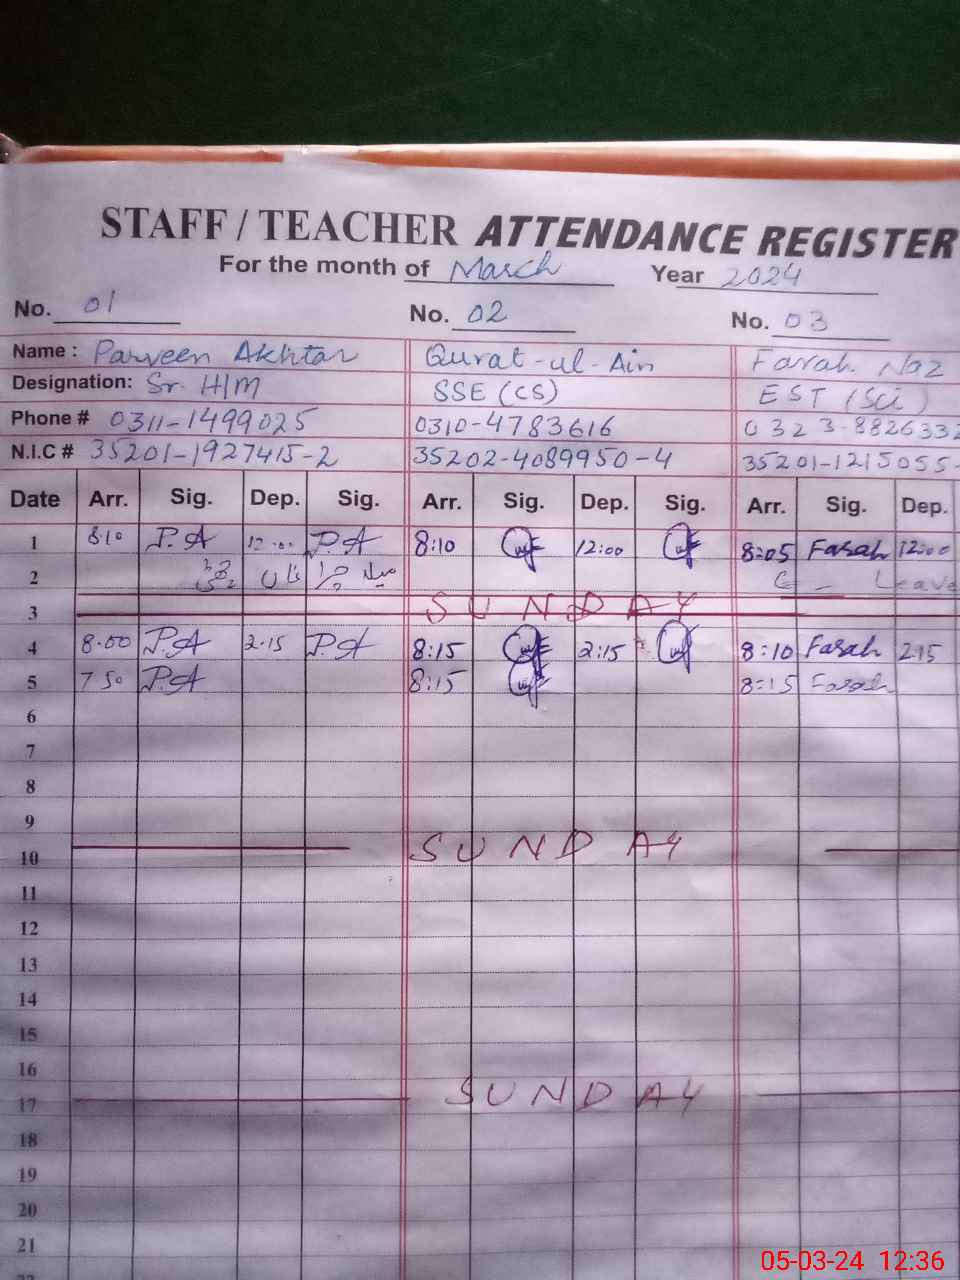 STAFF / TEACHER ATTENDANCE REGISTER
For the month of March Year 2024
No. 01 No. 02 No. 03
Name : Parveen Akhtar Qurat-ul-Ain Farah Naz
Designation: Sr. H/M SSE (CS) EST (Sci)
Phone # 0311-1499025 0310-4783616 0323-8826332
N.I.C # 35201-1927415-2 35202-4089950-4 35201-1215055-
Date Arr. Sig. Dep. Sig. Arr. Sig. Dep. Sig. Arr. Sig. Dep.
1 8:10 P.A 12:00 P.A 8:10 12:00 8:05 Farah 12:00
2 میلہ چراغاں Leave
3 SUNDAY
4 8:00 P.A 2:15 P.A 8:15 2:15 8:10 Farah 2:15
5 7 50 P.A 8:15 8:15 Farah
6
7
8
9
10 SUNDAY
11
12
13
14
15
16
17 SUNDAY
18
19
20
21
05-03-24 12:36